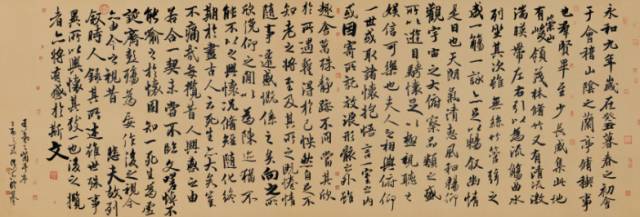 永和九年歲在癸丑暮春之初會
于會稽山陰之蘭亭脩禊事
也羣賢畢至少長咸集此地
崇山
有峻領茂林脩竹又有清流激
湍暎帶左右引以為流觴曲水
列坐其次雖無絲竹管弦之
盛一觴一詠亦足以暢叙幽情
是日也天朗氣清惠風和暢仰
觀宇宙之大俯察品類之盛
所以遊目騁懷足以極視聽之
娛信可樂也夫人之相與俯仰
一世或取諸懷抱悟言一室之內
或因寄所託放浪形骸之外雖
趣舍萬殊靜躁不同當其欣
於所遇暫得於己快然自足不
知老之將至及其所之既惓情
隨事遷感慨係之矣向之所
欣俛仰之間以為陳迹猶不
能不以之興懷況脩短隨化終
期於盡古人云死生亦大矣豈
不痛哉每攬昔人興感之由
若合一契未嘗不臨文嗟悼不
能喻之於懷固知一死生為虛
誕齊彭殤為妄作後之視今
亦由今之視昔悲夫故列
叙時人錄其所述雖世殊事
異所以興懷其致一也後之攬
者亦將有感於斯文